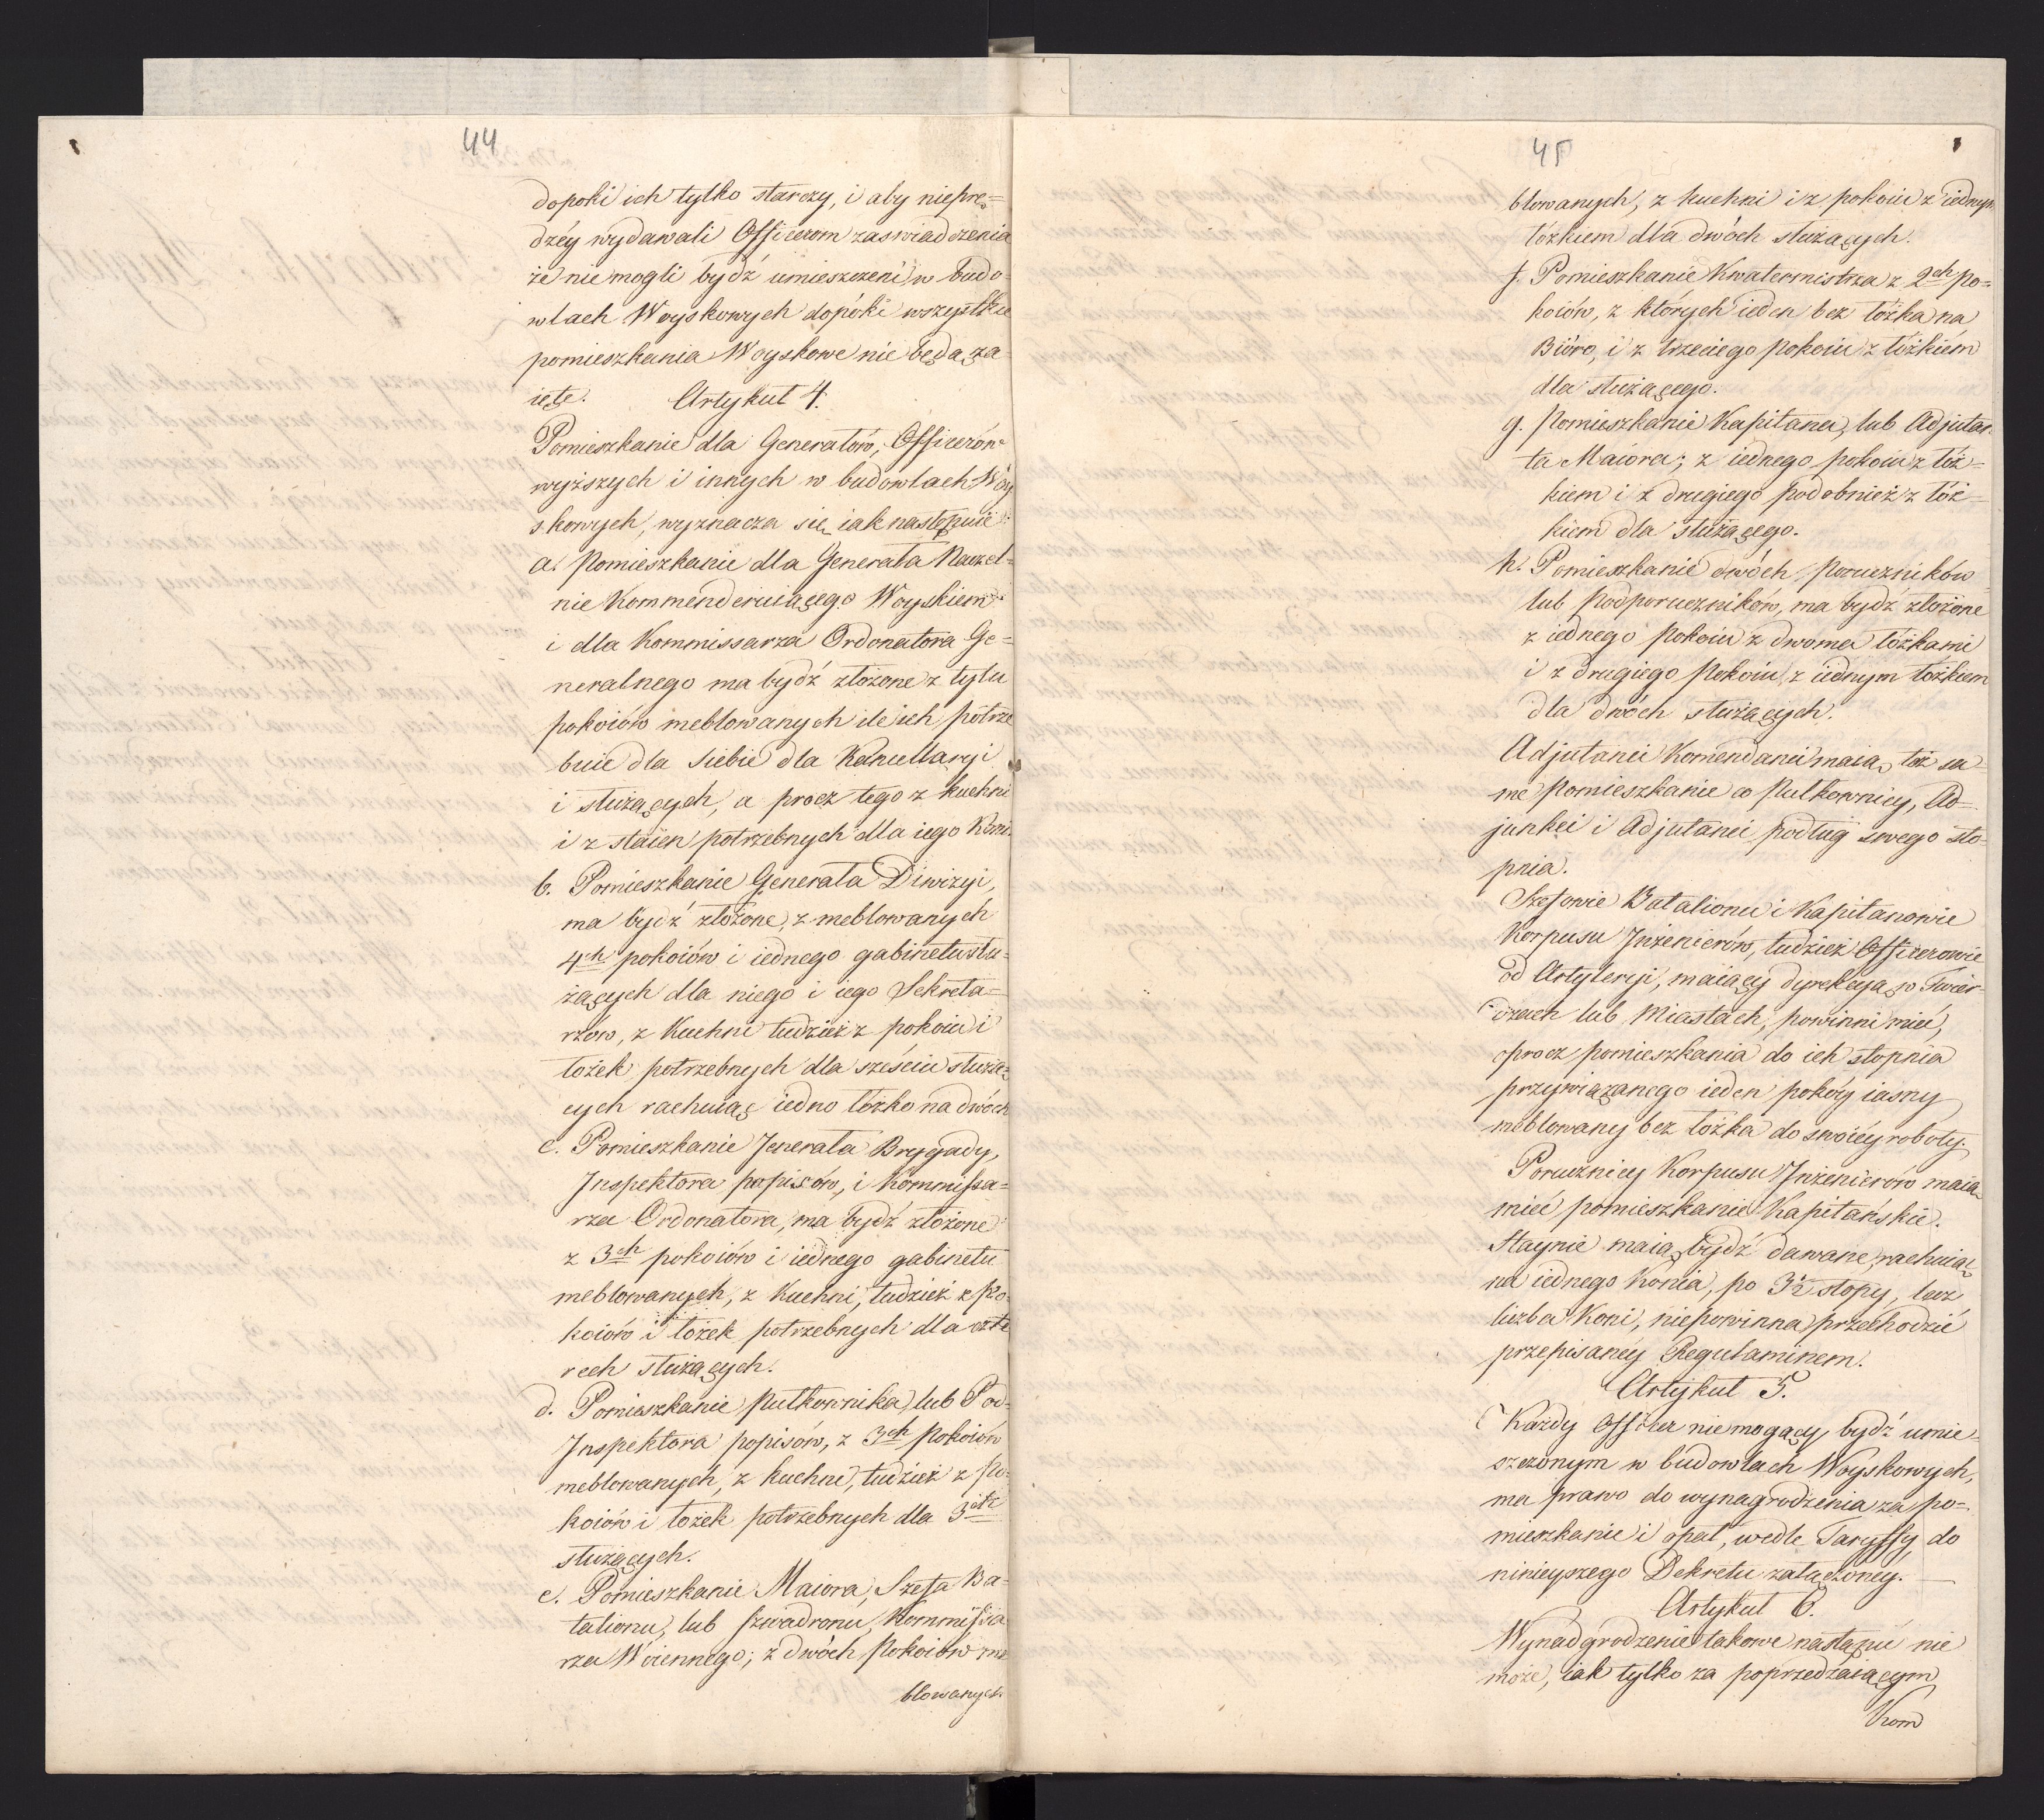 44
dopoki ich tylko starczy, i aby nieprę=
dzéy wydawali Officerom zaswiadczenia
że nie mogli bydź umieszczeni w budo-
wlach Woyskowych dopóki wszystkie
pomieszkania Woyskowe nie będą za-
ięte. Artykuł 4.
Pomieszkanie dla Generałów, Officerów
wyższych i innych w budowlach Woy
skowych, wyznacza się iak następuie:
a. Pomieszkanie dla Generała Naczel-
nie Kommenderuiącego Woyskiem
i dla Kommissarza Ordonatora Ge=
neralnego ma bydź złożone z tylu
pokoiów meblowanych ile ich potrze
buie dla siebie dla Kancellaryi
i służących, a procz tego z kuchni
i z staien potrzebnych dla iego Koni.
b. Pomieszkanie Generała Diwizyi,
ma bydź złożone, z meblowanych
4ch pokoiów i iednego gabinetu słu-
żących dla niego i iego Sekreta=
rzow, z Kuchni tudzież z pokoiu i
łożek potrzebnych dla sześciu służą-
cych rachuiąc iedno łóżko na dwóch
c. Pomieszkanie Jenerała Brygady,
Inspektora popisów, i Kommissa=
rza Ordonatora, ma bydź złożone
z 3ch pokoiów i iednego gabinetu
meblowanych, z Kuchni, tudzież z Po-
koiów i łożek potrzebnych dla czte
rech służących.
d. Pomieszkanie Pułkownika, lub Pod-
Inspektora popisów, z 3ch Pokoiów
meblowanych, z kuchni, tudzież z Po-
koiów i łożek potrzebnych dla 3ch
służących.
e. Pomieszkanie Maiora, Szefa Ba-
talionu, lub szwadronu, Kommissa
rza Woiennego; z dwóch Pokoiów me
blowanych
45
blowanych, z kuchni i z pokoiu z iednym
łóżkiem dla dwóch służących.
f. Pomieszkanie Kwatermistrza z 2ch po=
koiów, z których ieden bez łóżka na
Bióro, i z trzeciego pokoiu z łóżkiem
dla służącego.
g. Pomieszkanie Kapitana, lub Adjutan-
ta Maiora; z iednego pokoiu z łóż=
kiem i z drugiego podobnież z łóż-
kiem dla służącego.
h. Pomieszkanie dwóch Poruczników
lub Podporuczników, ma bydź złożone
z iednego Pokoiu z dwoma łóżkami
i z drugiego Pokoiu, z iednym łóżkiem
dla dwóch służących.
Adjutanci Komendanci maią toż sa-
me Pomieszkanie co Pułkownicy, Ad-
junkci i Adjutanci podług swego sto-
pnia.
Szefowie Batalionu i Kapitanowie
Korpusu Inżenierów, tudzież Officerowie
od Artyleryi, maiący dyrekcyą w Twier-
dzach lub Miastach, powinni mieć,
oprocz pomieszkania do ich stopnia
przywiązanego ieden pokóy iasny
meblowany bez łóżka do swoiéy roboty.
Porucznicy Korpusu Inżenierów maią
mieć pomieszkanie Kapitańskie.
Staynie maią bydź dawane, rachuiąc
na iednego Konia, po 3½ stopy, lecz
liczba Koni, niepowinna przechodzić
przepisanéy Regulaminem.
Artykuł 5.
Każdy Officer niemogący bydź umie-
szczonym w budowlach Woyskowych,
ma prawo do wynagrodzenia za po=
mieszkanie i opał, wedle Taryffy do
ninieyszego Dekretu załączoney.
Artykuł 6.
Wynadgrodzenie takowe nastąpić nie
może, iak tylko za poprzedzaiącym
Kom